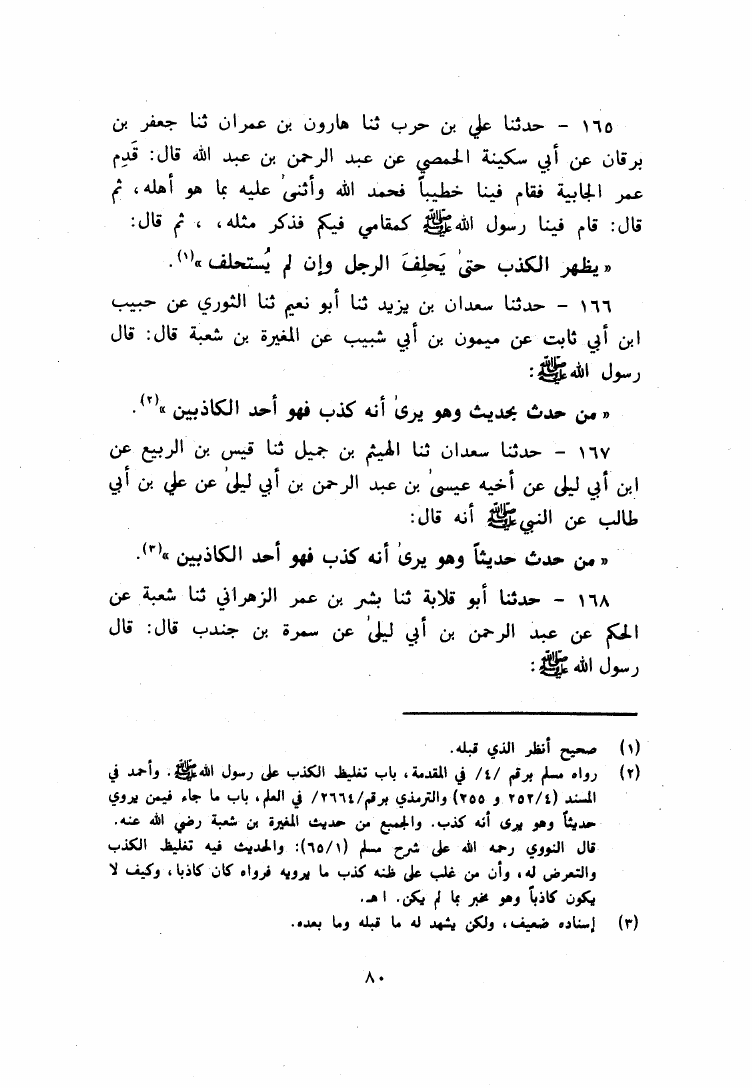 ١٦٥ - حدثنا علي بن حرب ثنا هارون بن عمران ثنا جعفر بن
برقان عن أبي سكينة الحمصي عن عبد الرحمن بن عبد الله قال: قَدِم
عمر الجابية فقام فينا خطيباً فحمد الله وأثنىٰ عليه بما هو أهله، ثم
قال: قام فينا رسول الله ﷺ كمقامي فيكم فذكر مثله، ، ثم قال:
« يظهر الكذب حتىٰ يَحلِفَ الرجل وإن لم يُستحلف »(١).
١٦٦ - حدثنا سعدان بن يزيد ثنا أبو نعيم ثنا الثوري عن حبيب
ابن أبي ثابت عن ميمون بن أبي شبيب عن المغيرة بن شعبة قال: قال
رسول الله ﷺ:
« من حدث بحديث وهو يرىٰ أنه كذب فهو أحد الكاذبين »(٢).
١٦٧ - حدثنا سعدان ثنا الهيثم بن جميل ثنا قيس بن الربيع عن
ابن أبي ليلى عن أخيه عيسىٰ بن عبد الرحمن بن أبي ليلىٰ عن علي بن أبي
طالب عن النبي ﷺ أنه قال:
« من حدث حديثاً وهو يرىٰ أنه كذب فهو أحد الكاذبين »(٣).
١٦٨ - حدثنا أبو قلابة ثنا بشر بن عمر الزهراني ثنا شعبة عن
الحكم عن عبد الرحمن بن أبي ليلىٰ عن سمرة بن جندب قال: قال
رسول الله ﷺ:
(١) صحيح أنظر الذي قبله.
(٢) رواه مسلم برقم /٤/ في المقدمة، باب تغليظ الكذب على رسول الله ﷺ. وأحمد في
المسند (٢٥٢/٤ و ٢٥٥) والترمذي برقم/٢٦٦٤/ في العلم، باب ما جاء فيمن يروي
حديثاً وهو يرى أنه كذب. والجميع من حديث المغيرة بن شعبة رضي الله عنه.
قال النووي رحمه الله على شرح مسلم (٦٥/١): والحديث فيه تغليظ الكذب
والتعرض له، وأن من غلب على ظنه كذب ما يرويه فرواه كان كاذبا، وكيف لا
يكون كاذباً وهو مخبر بما لم يكن. اهـ.
(٣) إسناده ضعيف، ولكن يشهد له ما قبله وما بعده.
٨٠